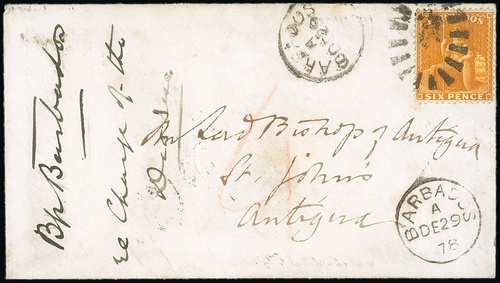 Bp Barbados
re Charge of the
BARBADOS
A
DE 29
BARBADOS
SIX PENCE
Lord Bishop of Antigua
St. John's
Antigua
BARBADOS
A
DE 29
78